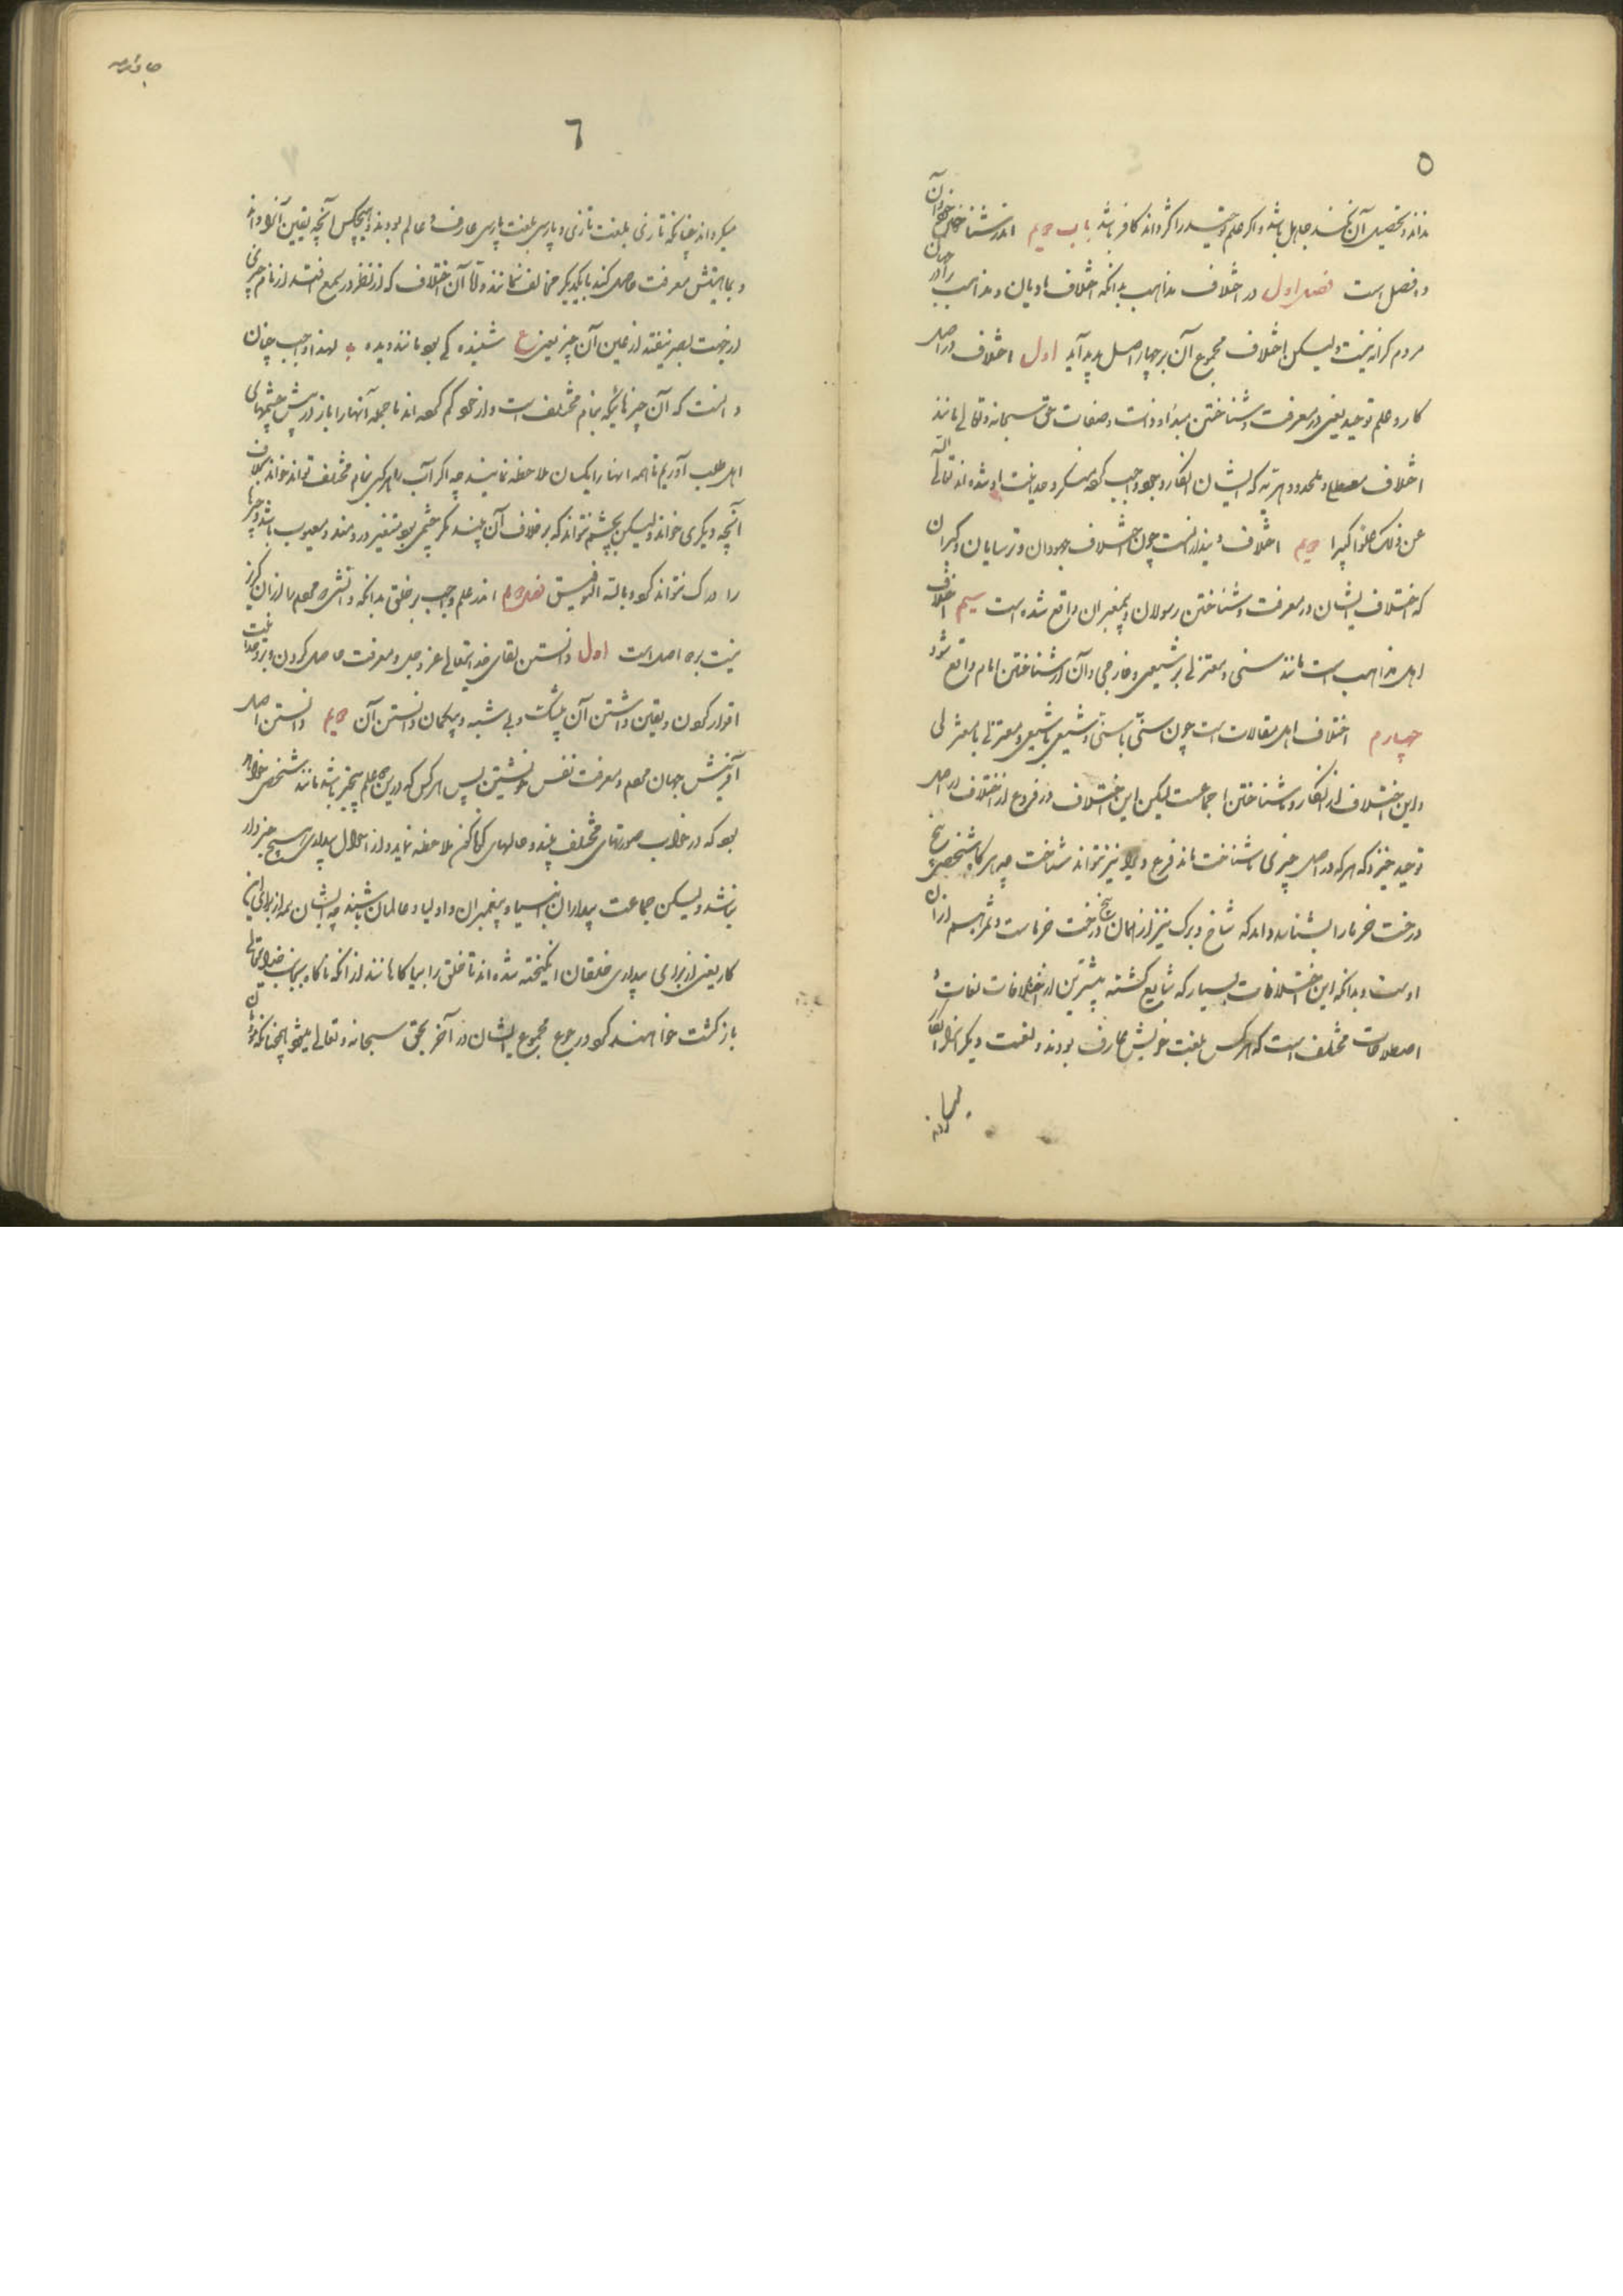 ۵
نداند و تحصیل آن نکند جاهل باشد و اگر علم توحید را نگرداند کافر باشد باب دویم اندر شناختن
و فصل است فصل اول در اختلاف مذاهب بدانکه اختلاف ادیان و مذاهب در
مردم کرانه نیست ولیکن اختلاف مجموع آن بر چهار اصل پدید آید اول اختلاف در اصل
کار و علم توحید یعنی در معرفت و شناختن مبدأ و ذات و صفات حق سبحانه و تعالی مانند
اختلاف معطله و ملحد و دهریه که ایشان انکار وجود واجب کرده منکر وحدانیت او شده اند تعالی الله
عن ذلک علوا کبیرا دویم اختلاف دینداریست چون اختلاف جهودان و ترسایان و گبران
که اختلاف ایشان در معرفت و شناختن رسولان و پیغمبران واقع شده است سیم اختلاف
اهل مذاهب است مانند سنی و معتزلی و شیعی و خارجی و آن در شناختن امام واقع شود
چهارم اختلاف اهل مقالات است چون سنی با سنی و شیعی با شیعی و معتزلی با معتزلی
و این اختلاف از انکار و شناختن اجماعست لیکن این اختلاف در فروع از اختلاف در اصل
توحید خیزد که هر که در اصل چیزی ناشناخت ماند فرع ویرا نیز نتواند شناخت چه هر گاه شخصی بیخ
درخت خرما را بشناسد داند که شاخ و برگ نیز از همان بیخ درخت خرماست و ثمر هم از آن
اوست و بدانکه این اختلافات بسیار که شایع گشته بیشترین از اختلافات لغات و
اصطلاحات مختلف است که هر کس بلغت خویش عارف بودند و لغت دیگر را انکار
۶
میکرده اند چنانکه تازی بلغت تازی و پارسی بلغت پارسی عارف و عالم بودند و هیچکس آنچه بیقین آنرا داند
و بماهیتش معرفت حاصل کند با یکدیگر مخالف نمانند و اما آن اختلاف که از نظر در سمع افتد از نام چیزی
از جهت بصر نیفتد از عین آن چیز یعنی ع شنیده کی بود مانند دیده ب لهذا واجب چنان
دانست که آن چیزهائیکه بنام مختلف است و از خود گم کرده اند تا جمله آنها را باز در پیش چشمهای
اهل طلب آوریم تا همه آنها را یکسان ملاحظه نمایند چه اگر آب را هر کس بنام مختلف تواند خواند بخلاف
آنچه دیگری خواند ولیکن بچشم نتواند که بر خلاف آن بیند مگر چشمی بود متغیر و دردمند و معیوب باشد و چیزها
را درک نتواند کرد و بالله التوفیق فصل دویم اندر علم واجب بر خلق بدانکه دانشی که مردم را از آن گزیر
نیست بر دو اصل است اول دانستن لقای خدایتعالی عز و جل و معرفت حاصل کردن و بر وحدانیت
اقرار کردن و یقین داشتن آن بیشک و بی شبه و بیگمان دانستن آن دویم دانستن اصل
آفرینش جهان و مردم و معرفت نفس خویشتن پس هر کس که درین دو علم بیخبر باشد مانند شخص خوابیده
بود که در خواب صورتهای مختلف بیند و حالهای گوناگون ملاحظه نماید و از احوال بیداری هیچ خبردار
نباشد ولیکن جماعت بیداران انبیا و پیغمبران و اولیا و عالمان باشند چه ایشان همه از برای این
کار یعنی از برای بیداری خلقان انگیخته شده اند تا خلق را بیاگاهانند از آنکه ناگاه بجناب خدایتعالی
بازگشت خواهند کرد و رجوع مجموع ایشان در آخر بحق سبحانه و تعالی میشود چنانکه